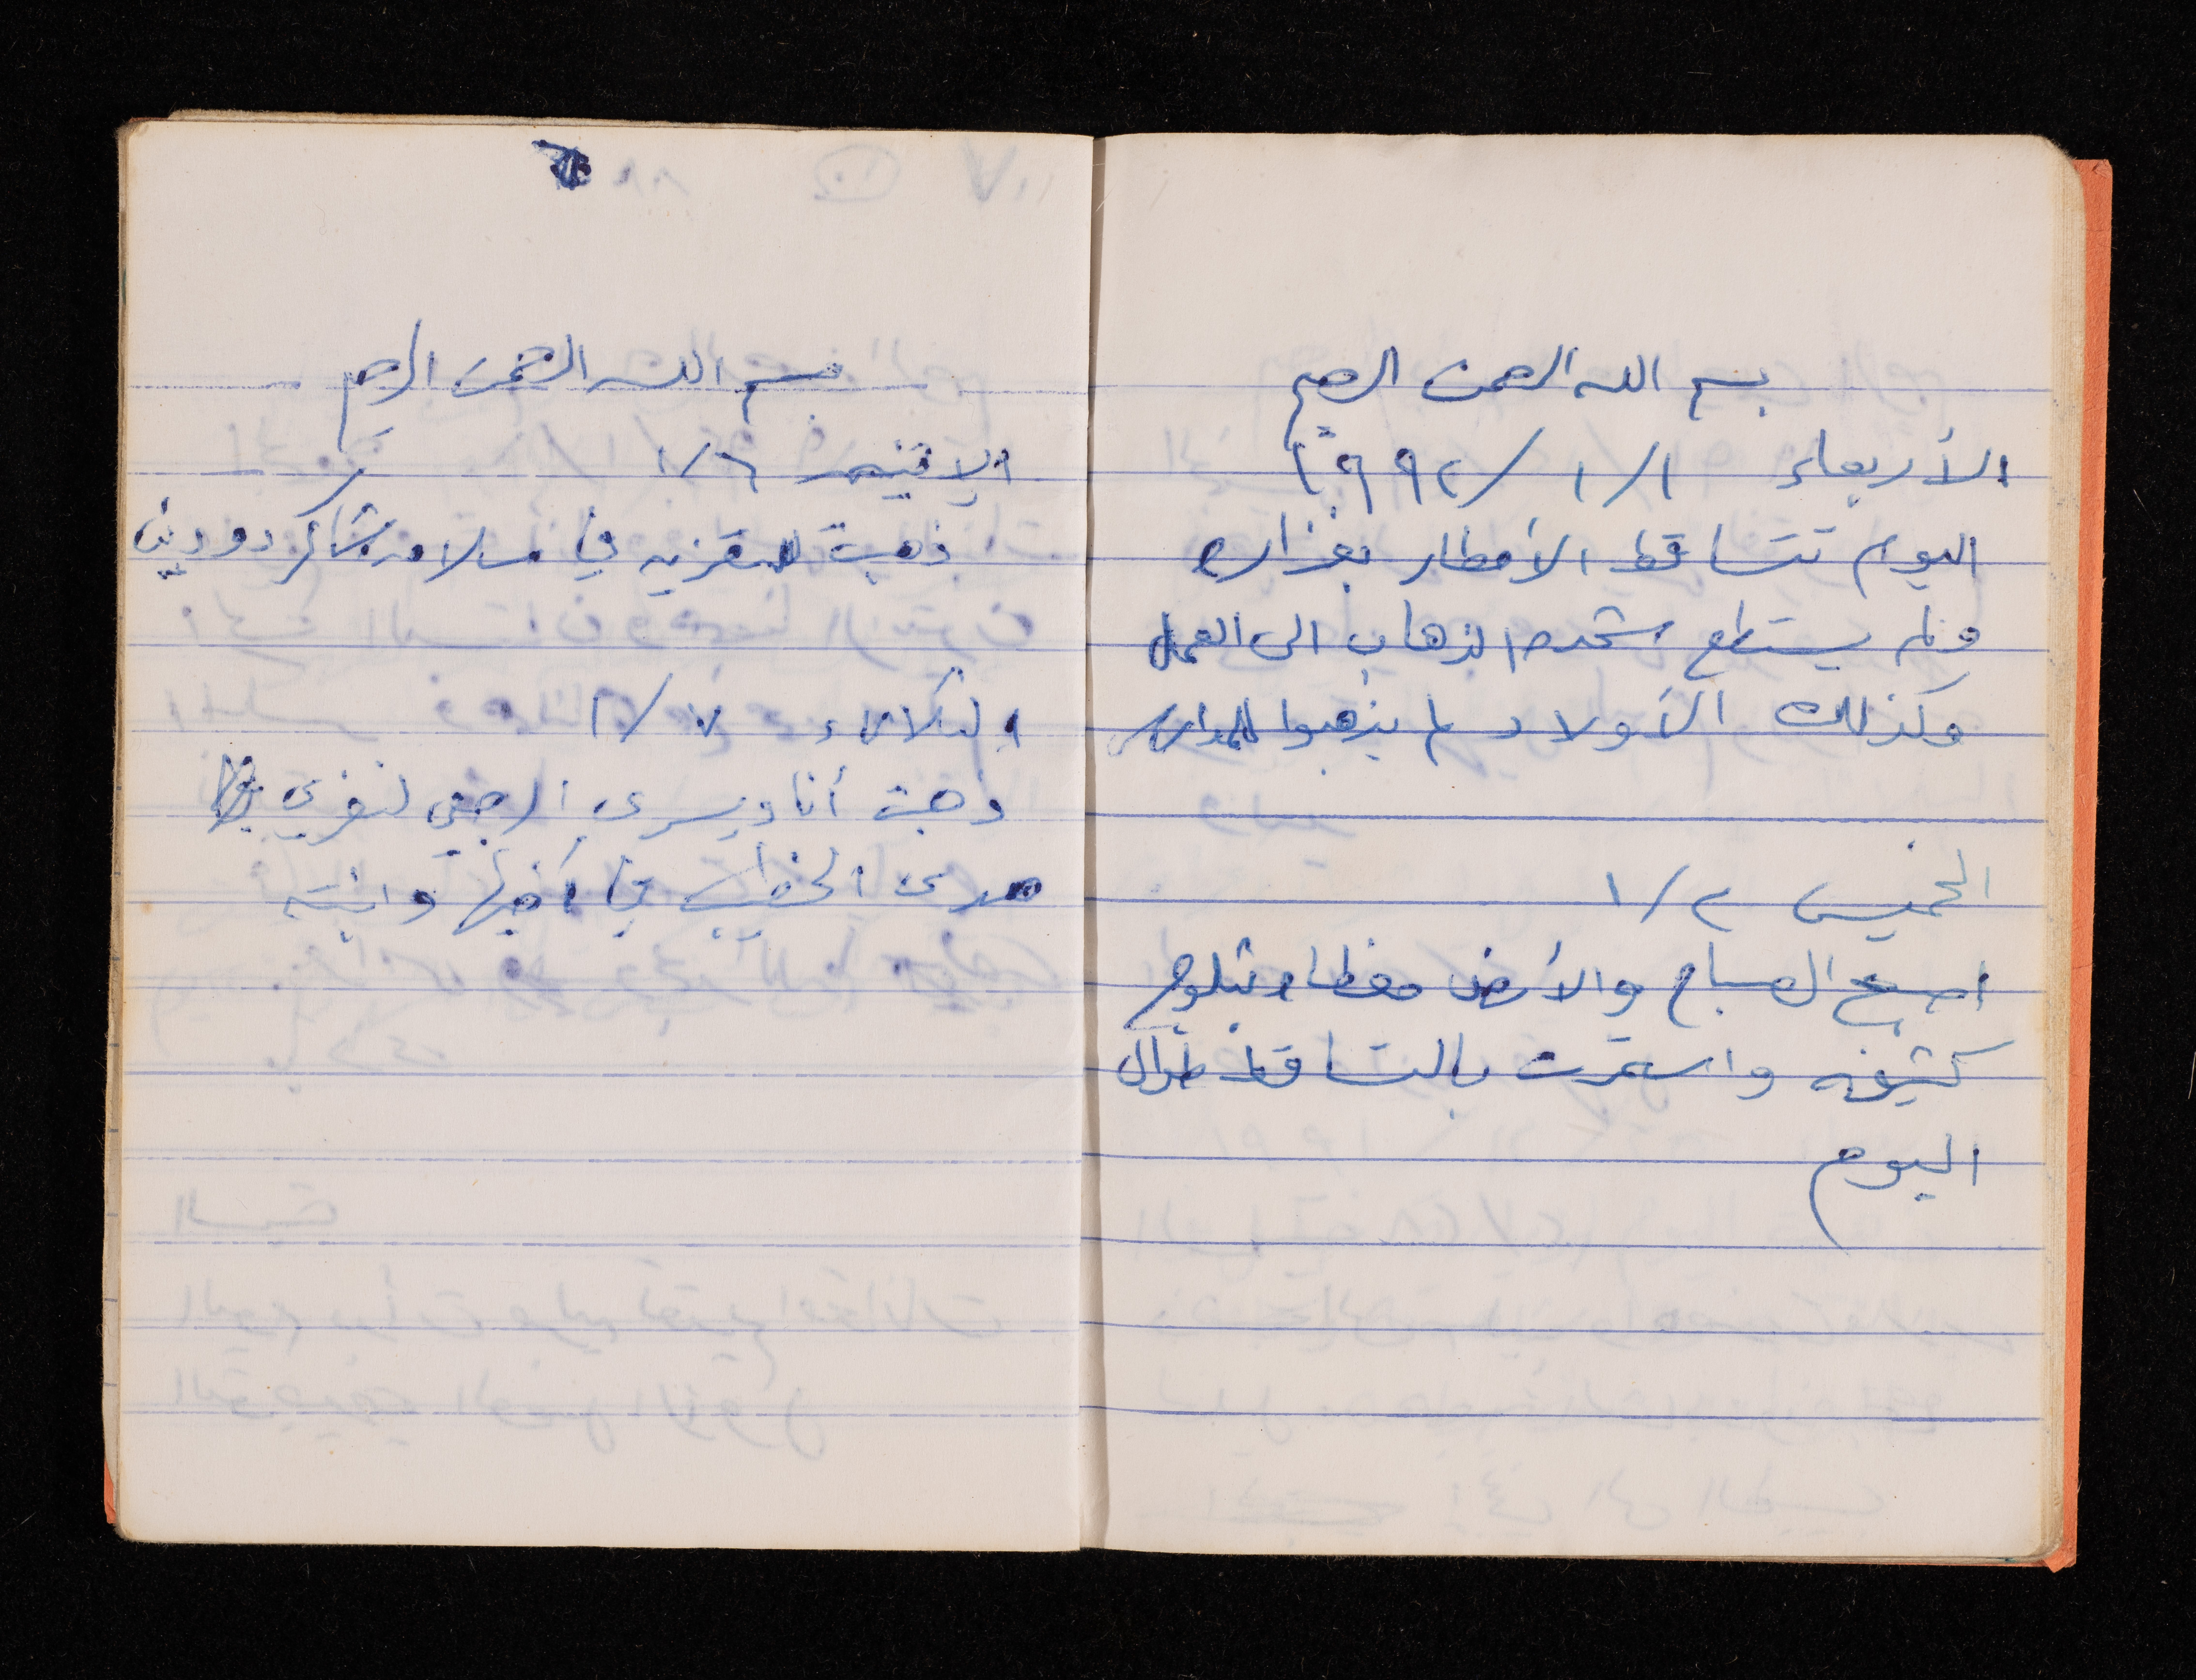 بسم الله الرحمن الرحيم
الأربعاء ١/١/١٩٩٢
اليوم تتساقط الأمطار بغزاره
ولم يستطع الذهاب الى العمل
وكذلك الأولاد لم يذهبوا للمدارس
الخميس ١/٢
اصبح الصباح والأرض مغطاه بثلوج
كثيفه واستمرت بالتساقط طوال
اليوم
بسم الله الرحمن الرحيم
الاثنين ١/٦
ذهبت للتعزيه في سلامه شاكر دودين
الثلاثاء ١/٧
ذهبت أنا ويسرى لنعزي
هدى الخطيب في أخيها وابنته